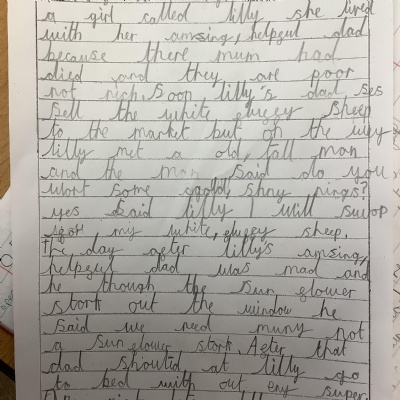 a girl called lilly she lived
with her amsing, helpgul dad
because there mum had
died and they are poor
not rich. Soon lilly's dad ses
sell the white gluggy sheep
to the market but on the way
lilly met a old, tall man
and the man said do you
wort some goold, shny rings?
yes said lilly I will swop
my white, gluggy sheep.
The day agter lilly's amsing,
helpgul dad was mad and
he though the sun glower
stork out the window he
said we need muny not
a sun glower stork. Agter that
dad shoutid at lilly go
to bed with out eny super.